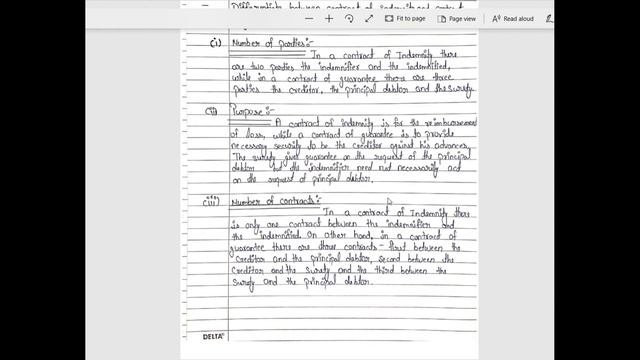 Differentiate between contract of indemnity and contract
Fit to page
Page view
Read aloud
(i) Number of parties:-
In a contract of Indemnify there
are two parties the indemnifier and the indemnified,
while in a contract of guarantee there are three
parties the creditor, the principal debtor and the surety
(ii) Purpose:-
A contract of indemnity is for the reimbursement
of loss, while a contract of guarantee is to provide
necessary security to be the creditor against his advances.
The surety gives guarantee on the request of the principal
debtor but the indemnifier need not necessarily act
on the request of principal debtor.
(iii) Number of contracts:-
In a contract of Indemnify there
is only one contract between the indemnifier and
the indemnified. On other hand, in a contract of
guarantee there are three contracts - first between the
creditor and the principal debtor, second between the
creditor and the surety and the third between the
surety and the principal debtor.
DELTA